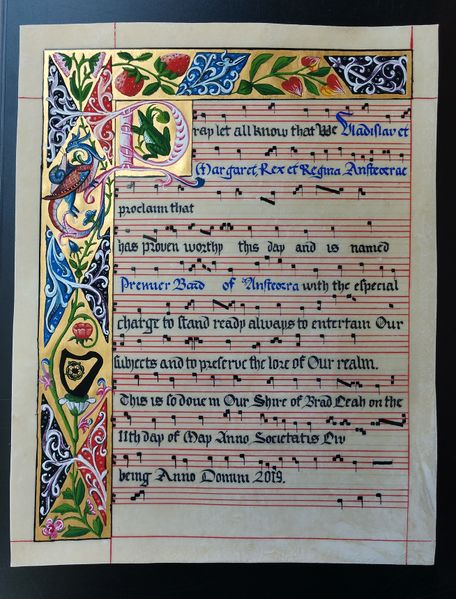 Pray let all know that We Vladislav et
Margaret, Rex et Regina Ansteorrae
proclaim that
has proven worthy this day and is named
Premier Bard of Ansteorra with the especial
charge to stand ready always to entertain Our
subjects and to preserve the lore of Our realm.
This is so done in Our Shire of Brad Leah on the
11th day of May Anno Societatis Liv
being Anno Domini 2019.